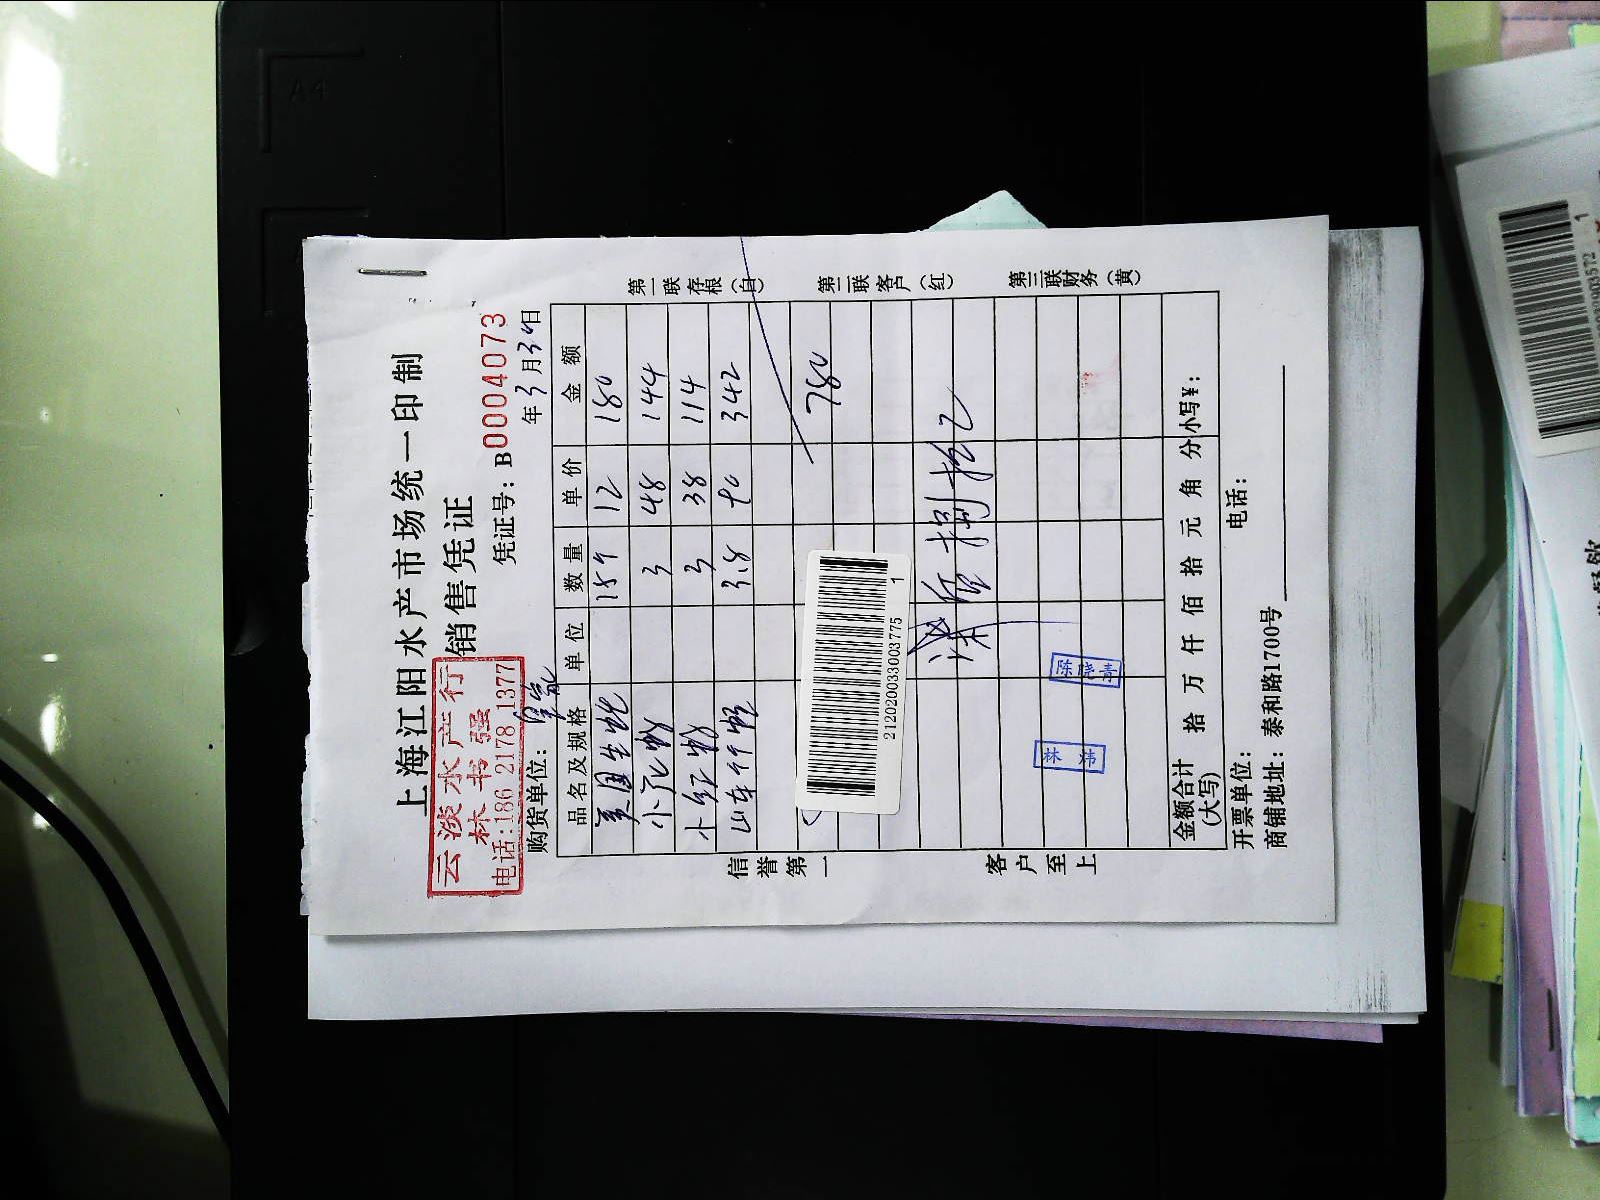 上海江阳水产市场统一印制
销售凭证
云淡水产行
林书强
电话:186 2178 1377
凭证号：B0004073
购货单位：
年3月30日
品名及规格 单位 数量 单价 金额
美国生蚝 12 180
3 48 144
3 38 114
3.8 90 342
780
212020033003775 1
陈晓青
林 炜
金额合计(大写) 拾 万 仟 佰 拾 元 角 分 小写¥：
开票单位： 电话：
商铺地址：泰和路1700号
信誉第一
客户至上
第一联存根(白)
第二联客户(红)
第三联财务(黄)
A4
1